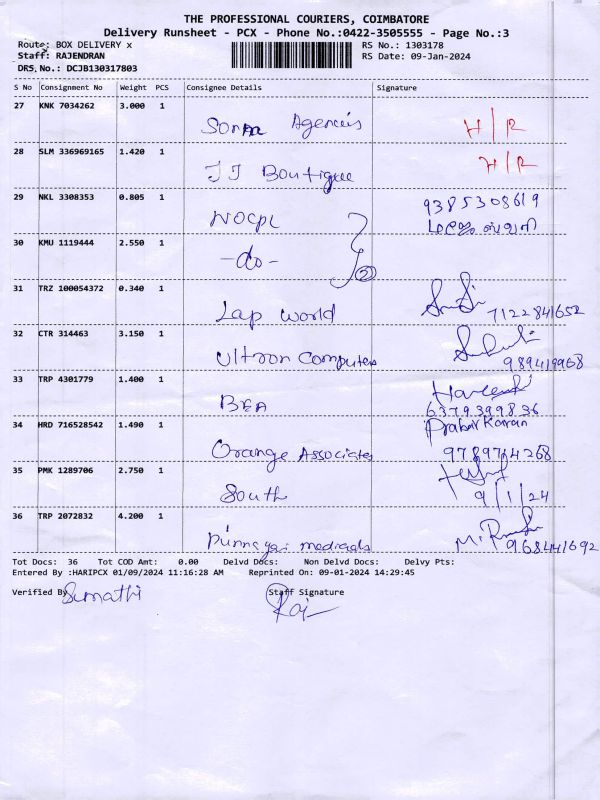 THE PROFESSIONAL COURIERS, COIMBATORE
Delivery Runsheet - PCX - Phone No.:0422-3505555 - Page No.:3
Route: BOX DELIVERY x RS No.: 1303178
Staff: RAJENDRAN RS Date: 09-Jan-2024
DRS.No.: DCJB130317803
S No Consignment No Weight PCS Consignee Details Signature
27 KNK 7034262 3.000 1
Agencies H/R
28 SLM 336969165 1.420 1
JJ Boutique H/R
29 NKL 3308353 0.805 1
NOCPL 9385308619
30 KMU 1119444 2.550 1
-do- 2
31 TRZ 100054372 0.340 1
Lap World 7122841652
32 CTR 314463 3.150 1
Ultron Computers 989419968
33 TRP 4301779 1.400 1
BEA 6379399836
34 HRD 716528542 1.490 1
Prabar Karan
Orange Associates 9789714268
35 PMK 1289706 2.750 1
South 9/1/24
36 TRP 2072832 4.200 1
medicals 968441692
Tot Docs: 36 Tot COD Amt: 0.00 Delvd Docs: Non Delvd Docs: Delvy Pts:
Entered By :HARIPCX 01/09/2024 11:16:28 AM Reprinted On: 09-01-2024 14:29:45
Verified By Sumathi Staff Signature
Raj